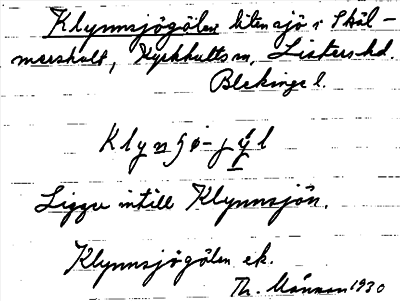 Klynnsjögölen liten sjö i Skäl-
mershult, Kyrkhults sn, Listers hd.
Blekinge l.
Klynsö-jyl
Ligger intill Klynnsjön.
Klynnsjögölen ek.
Th. Månsson 1930